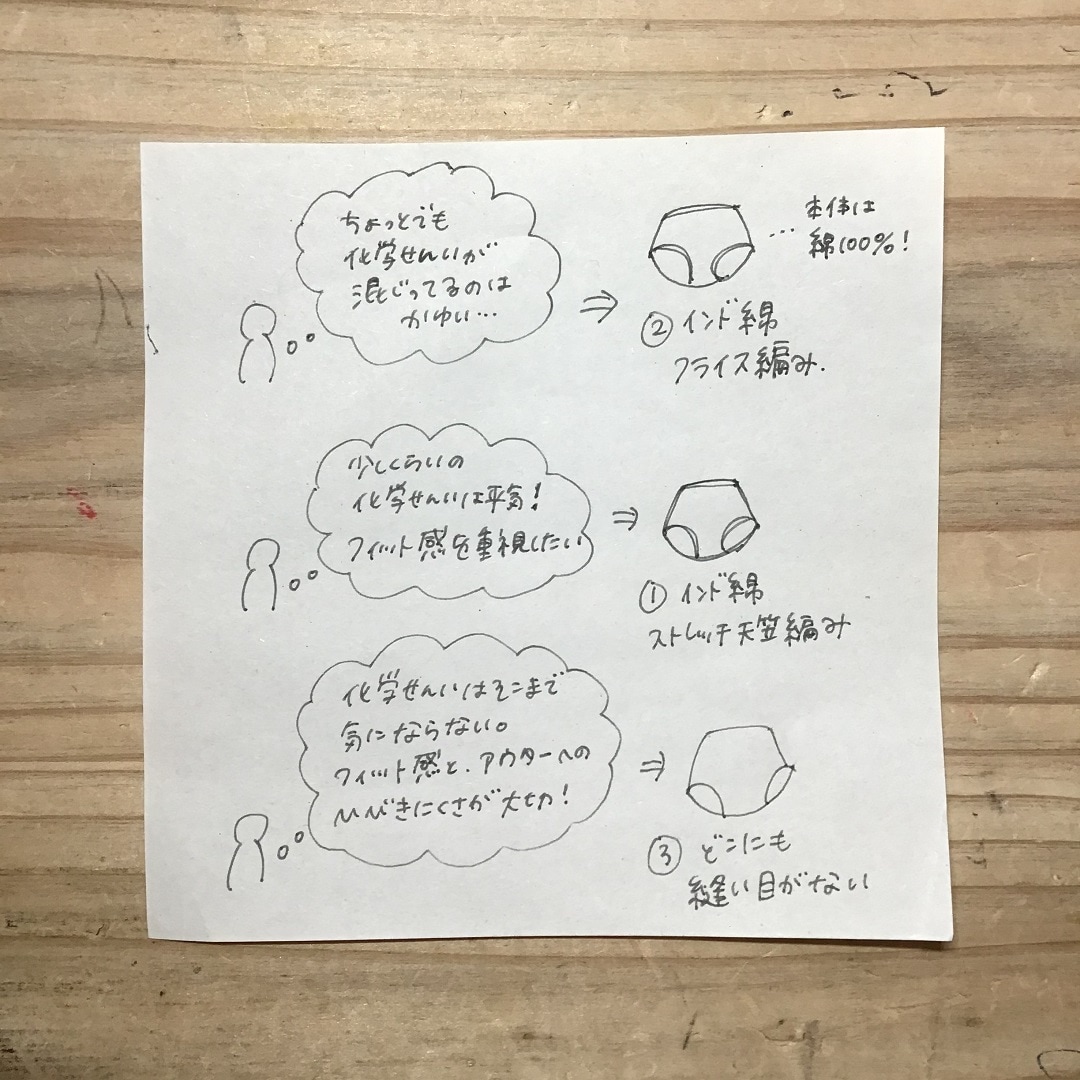 ちょっとでも
化学せんいが
混じってるのは
かゆい…
… 本体は
綿100%!
② インド綿
フライス編み.
少しくらいの
化学せんいは平気!
フィット感を重視したい
① インド綿
ストレッチ天竺編み
化学せんいはそこまで
気にならない。
フィット感と、アウターへの
ひびきにくさが大切!
③ どこにも
縫い目がない